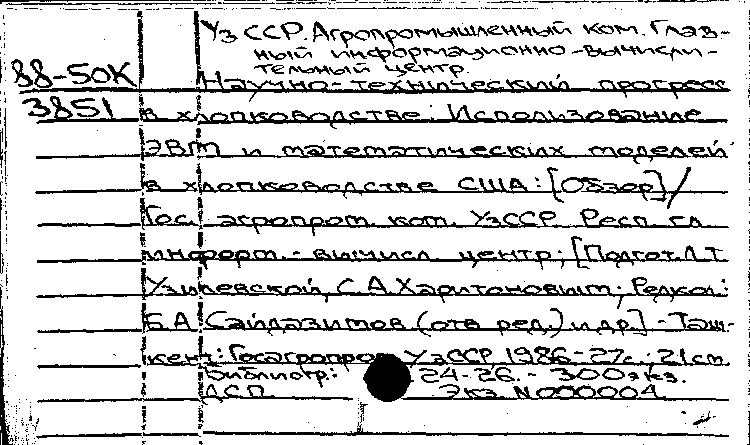 УзССР. Агропромышленный ком. Глав-
ный информационно-вычисли-
тельный центр.
88-50К Научно-технический прогресс
3851 в хлопководстве: Использование
ЭВМ и математических моделей
в хлопководстве США: [Обзор] /
Гос. агропром. ком. УзССР. Респ. гл.
информ.-вычисл. центр; [Подгот. Л.Т.
С.А. Харитоновым; Редкол.:
Б.А. Сайдазимов (отв. ред.) и др.] - Таш-
кент: Госагропром УзССР 1986-27с.; 21см.
Библиогр.: 24-26. - 300экз.
ДСП. Экз. N000004.